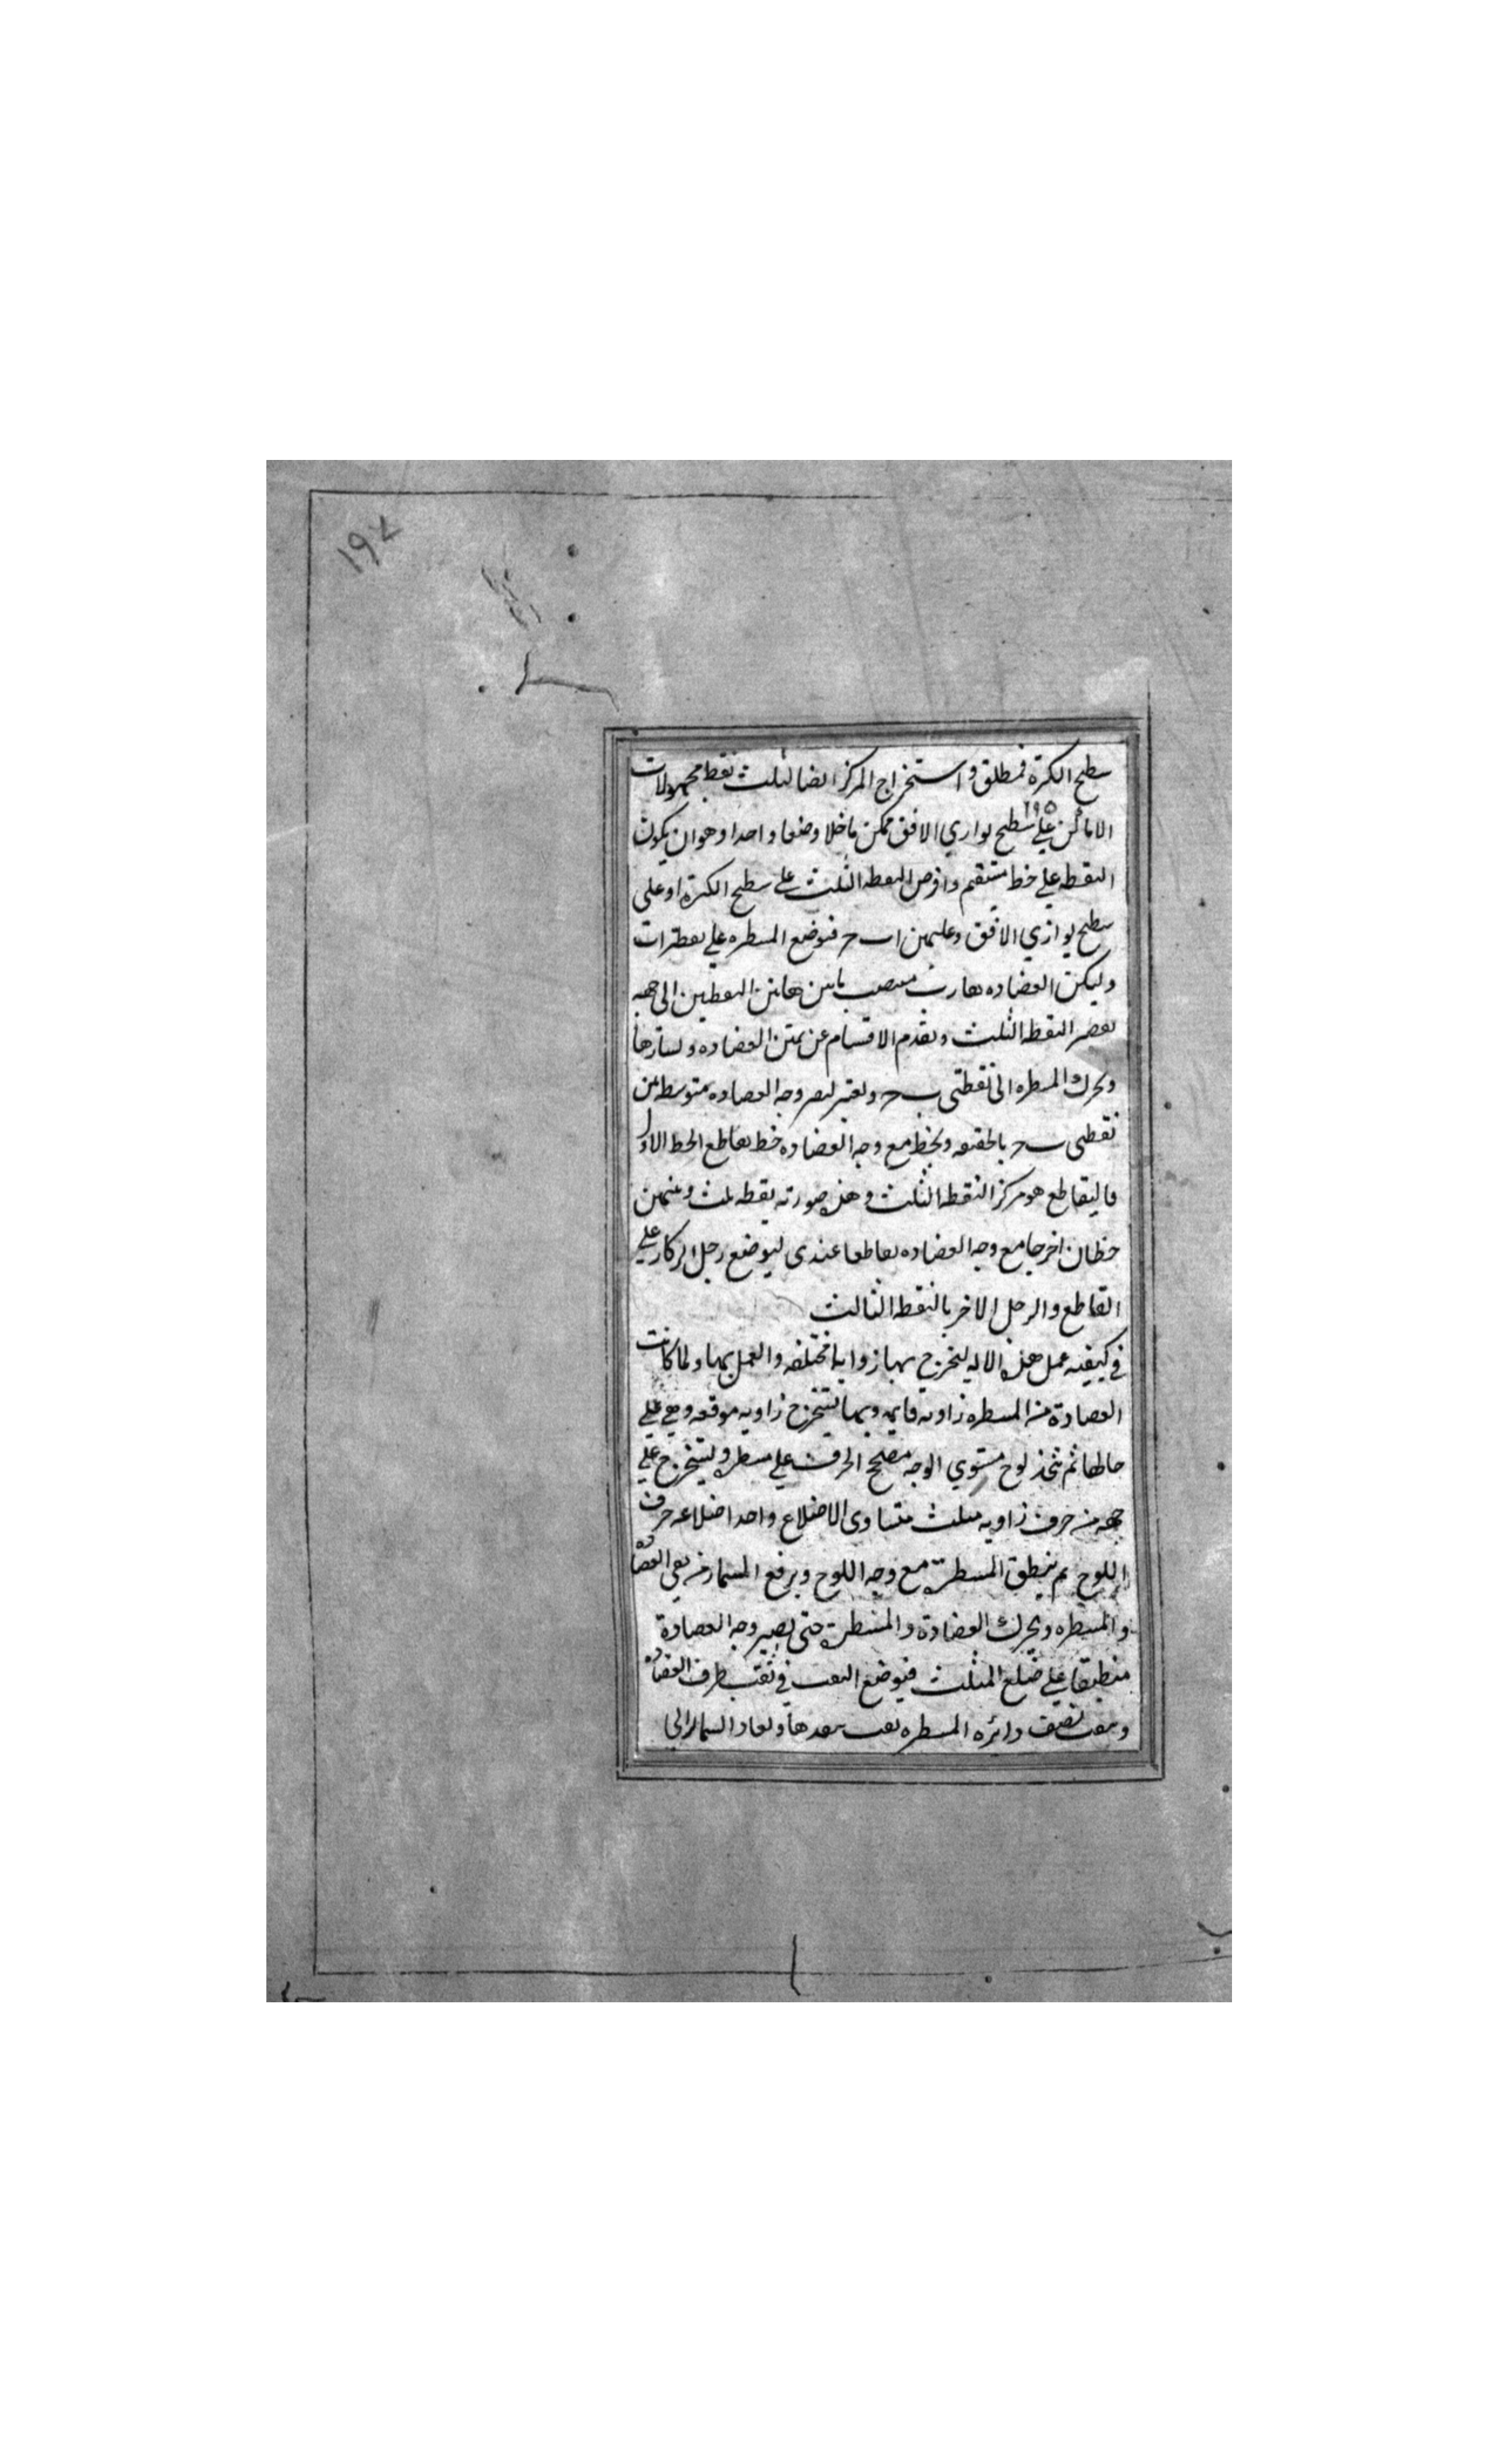 ١٩٧
سطح الكرة فمطلق واستخراج المركز ايضا لثلث نقط مجهولات
١٩٥
الاماكن على سطح يوازي الافق ممكن ما خلا وضعا واحدا وهو ان يكون
النقطه علي خط مستقيم وافرض النقطه الثلث على سطح الكرة او على
سطح يوازي الافق وعليهن ا ب ح فنوضع المسطره علي نقطتي ا ب
وليكن العضاده بين هاتين النقطتين الى جهه
النقطه الثلث وتقدم الاقسام عن يمين العضاده ويسارها
ونحرك المسطره الى نقطتى ب ح ونعتبر ليصير وجه العضاده متوسطه من
نقطتى ب ح بالحقيقه ونخط مع وجه العضاده خط يقاطع الخط الاول
فالتقاطع هو مركز النقطه الثلث وهذه صورته نقطه ثلث وبينهن
خطان اخرجا مع وجه العضاده تقاطعا عند ى ليوضع رجل البركار علي
التقاطع والرجل الاخر بالنقطه الثالث
في كيفيه عمل هذه الاله ليخرج بها زوايا مختلفه والعمل بها ولما كانت
العضادة من المسطره زاويه قايمه وبها تستخرج زاويه موقعه وهي علي
حالها ثم نتخذ لوح مستوي الوجه مصلح الحرف علي مسطره ونستخرج علي
جهه من حرف زاويه مثلث متساوى الاضلاع واحد اضلاعه حرف
اللوح ثم ينطبق المسطرة مع وجه اللوح ويرفع المسمار من العضاده
والمسطره ونحرك العضادة والمسطرة حتى يصير وجه العضادة
منطبقا علي ضلع المثلث فيوضع الثقب في ثقب طرف العضاده
ونثقب نصف دائره المسطره ثقب بعدها ونعاد المسمار الى